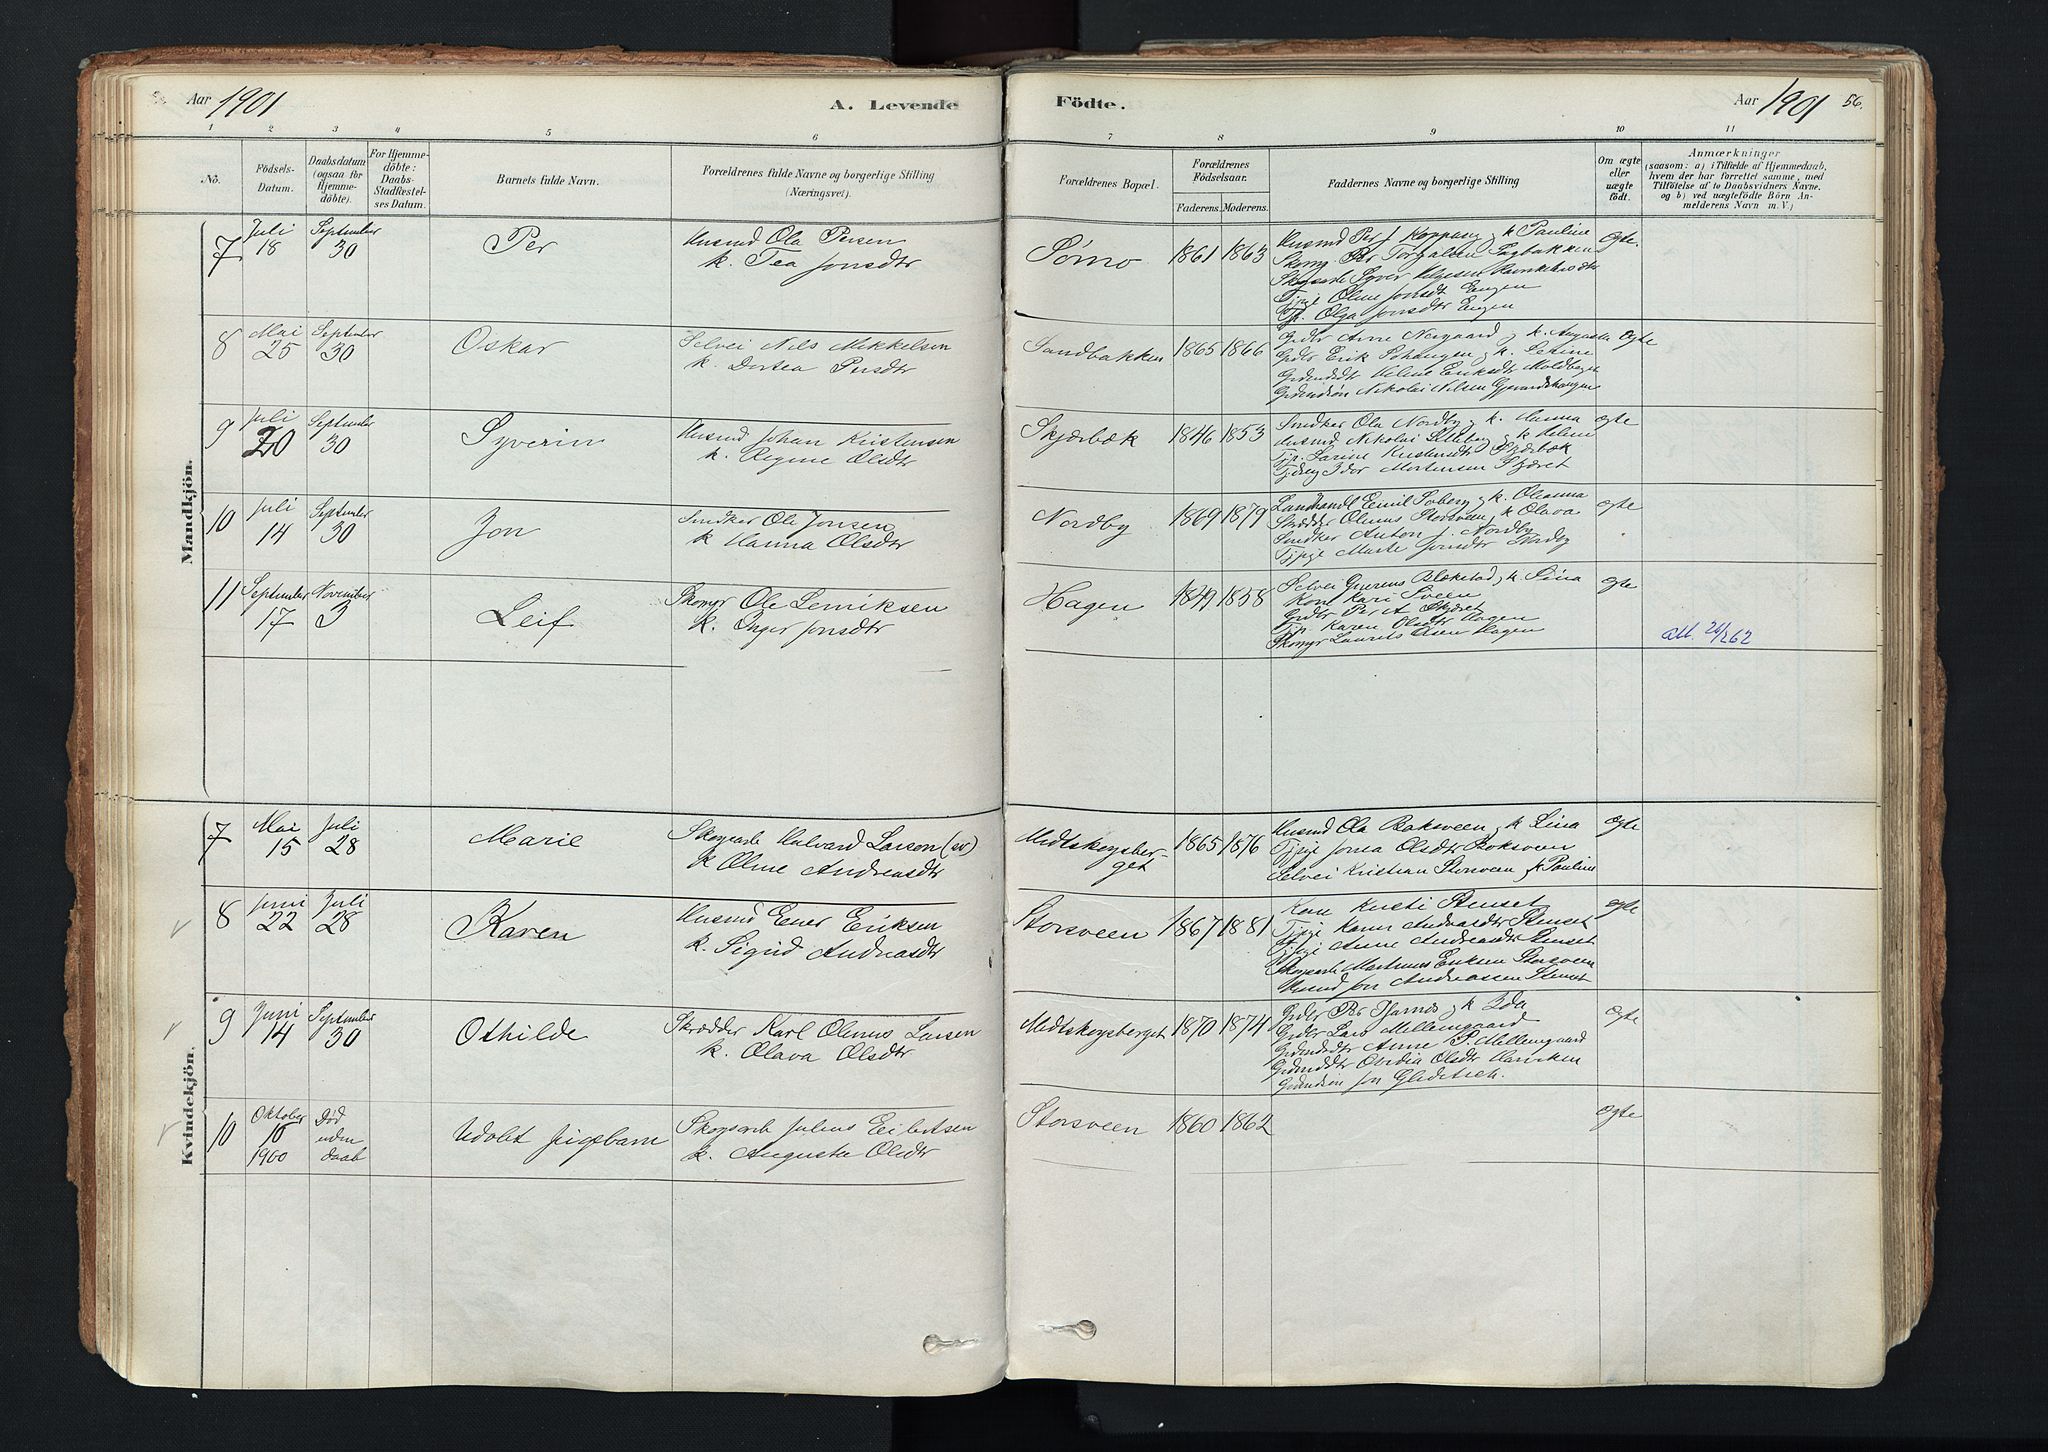 Aar 1901
A. Levende
Födte.
Aar 1901
56.
1 2 3 4 5 6 7 8 9 10 11
No.
Födsels-
Datum.
Daabsdatum
(ogsaa for
Hjemme-
döbte).
For Hjemme-
döbte:
Daabs-
Stadfæstel-
ses Datum.
Barnets fulde Navn.
Forældrenes fulde Navne og borgerlige Stilling
(Næringsvei).
Forældrenes Bopæl.
Forældrenes
Födselsaar.
Faderens. Moderens.
Faddernes Navne og borgerlige Stilling
Om ægte
eller
uægte
födt.
Anmærkninger
(saasom: a) i Tilfælde af Hjemmedaab,
hvem der har forrettet samme, med
Tilföielse af to Daabsvidners Navne.
og b) ved uægtefödte Börn An-
melderens Navn m. V.)
Mandkjön.
7
Juli
18
September
30
Per
Husmd Ola Persen
k. Tea Jonsdtr
Sørmo
1861 1863
Husmd Per J. Koppang og k. Pauline
Skomg Per Torgalden Fagbakken
Syver Helgesen
Tjpige Oline Jonsdt Engen
Tjp. Olga Jonsdtr Engen
Ægte.
8
Mai
25
September
30
Oskar
Selvei Nils Mikkelsen
k. Dortea Persdtr
Sandbakken
1865 1866
Grder Arne Norgaard og k. Augusta
Grder Erik Schaugen og k. Serine
Grdmdsdt Helene Eriksdtr
Grdmdsøn Nikolai Nilsen
Ægte
9
Juli
20
September
30
Syverin
Husmd Johan Kristensen
k. Regine Olsdtr
Skjærbæk
1846 1853
Snedker Ola Nordby og k. Hanna
Husmd Nikolai og k Helene
Tjp. Karine Kristensdtr Skjærbæk
Tjdreng Idor Mortensen Skjæret
ægte
10
Juli
14
September
30
Jon
Snedker Ole Jonsen
k Hanna Olsdtr
Nordby
1869 1879
Landhandl Emil Soberg og k. Oleanna
Skrædder Olinus Storsveen og k Olava
Snedker Anton J. Nordby
Tjpige Marte Jonsdtr Nordby
ægte
11
September
17
November
3
Leif
Skomgr Ole Lenriksen
k. Inger Jonsdtr
Hagen
1849 1858
Selvei og k. Lina
Kone Kari Sveen
Grder Per A Skjæret
Tjp. Karen Olsdtr Hagen
Skomgr Laurits Olsen Hagen
ægte
att. 26/262
Kvindekjön.
7
Mai
15
Juli
28
Marie
Skogsarb Halvard Larson (sv)
k Oline Andreasdtr
Midtskogsber-
get
1865 1876
Husmd Ola Boksveen og k Lina
Tjpige Jonea Olsdtr Boksveen
Selvei Kristian Storsveen og k Pauline
Ægte
8
Juni
22
Juli
28
Karen
Husmd Ener Eriksen
k. Sigrid Andreasdtr
Storsveen
1867 1881
Kone Kirsti Stenset
Tjpige Karen Andreasdtr Stenset
Tjpige Anne Andreasdtr Stenset
Skogsarb Martinus Eriksen Storsveen
Husmd Jon Andreassen Stenset
ægte
9
Juni
14
September
30
Othilde
Skrædder Karl Olinus Larsen
k. Olava Olsdtr
Midtskogsberget
1870 1874
Grder Per og k Ida
Grder Lars Mellemgaard
Grdmdsdtr Anne P. Mellemgaard
Grdmdsdtr Ovidia Olsdtr
Grdmdsøn Jon
Ægte
10
Oktober
10
1900
Død
uden
daab
Udøbt pigebarn
Skogsarb Julius Eilertsen
k. Augusta Olsdtr
Storsveen
1860 1862
ægte